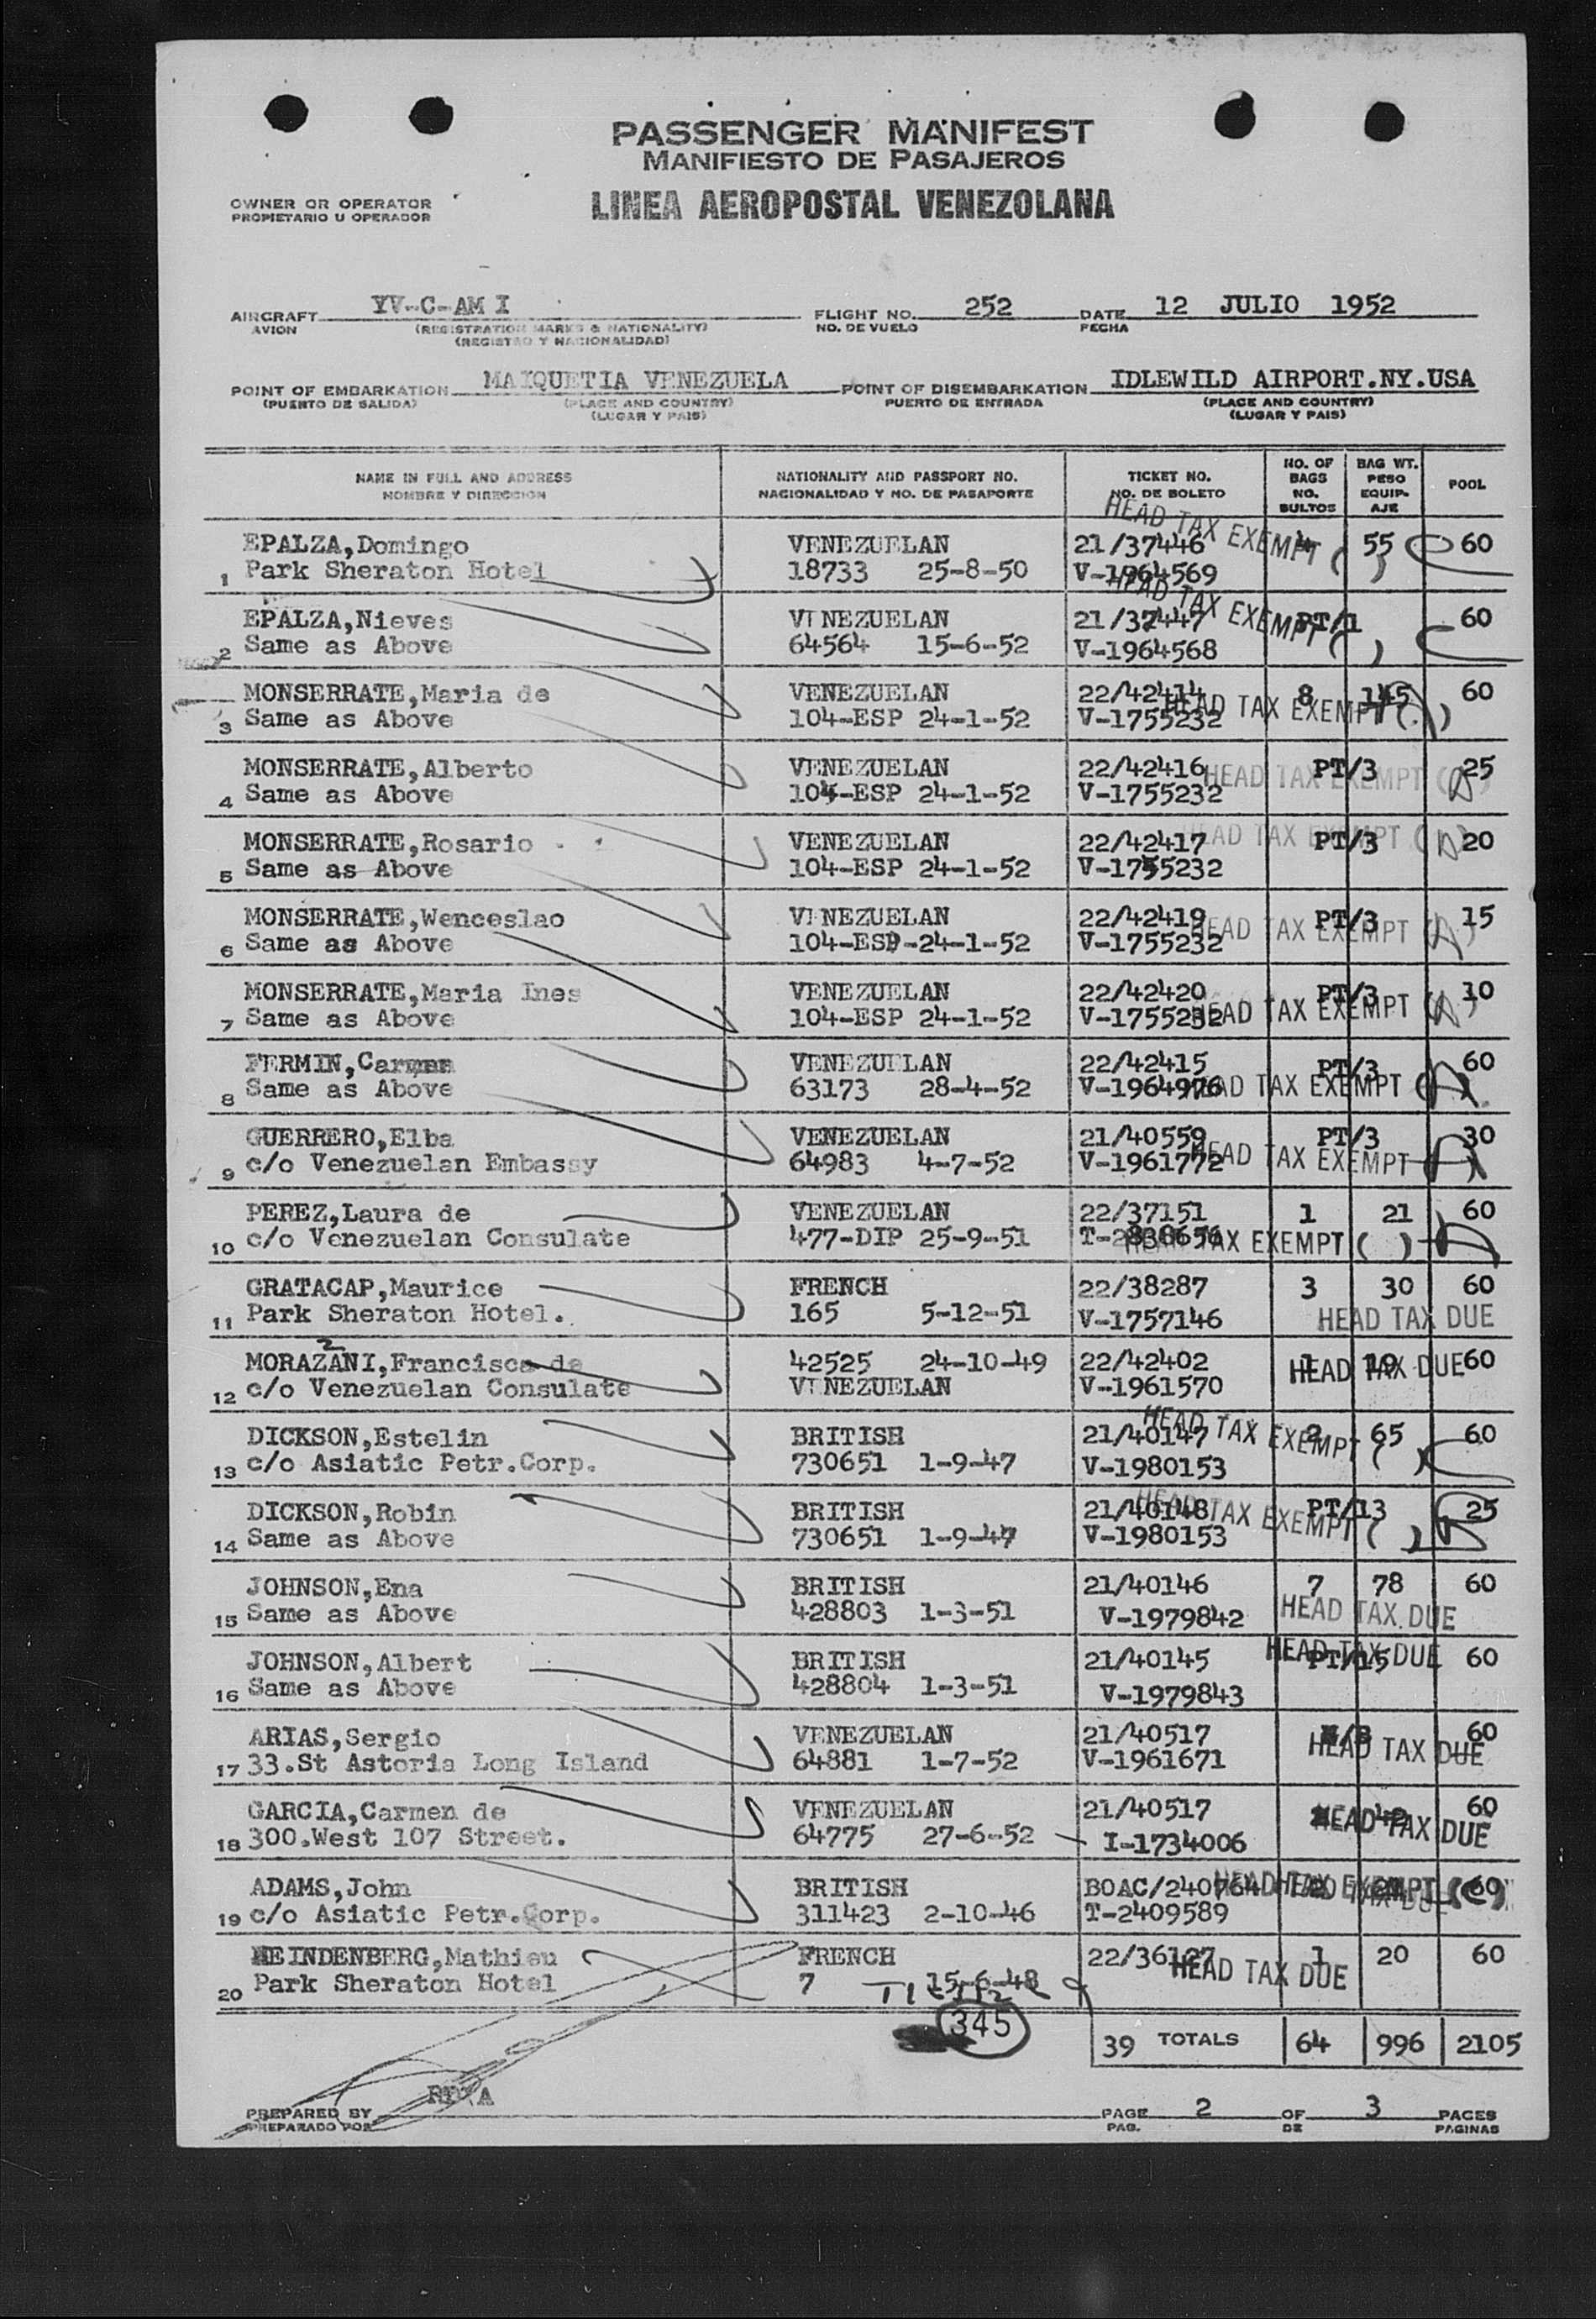 PASSENGER MANIFEST
MANIFIESTO DE PASAJEROS
OWNER OR OPERATOR
PROPIETARIO U OPERADOR
LINEA AEROPOSTAL VENEZOLANA
AIRCRAFT YV-C-AM I FLIGHT NO. 252 DATE 12 JULIO 1952
AVION (REGISTRATION MARKS & NATIONALITY) NO. DE VUELO FECHA
(REGISTRO Y NACIONALIDAD)
POINT OF EMBARKATION MAIQUETIA VENEZUELA POINT OF DISEMBARKATION IDLEWILD AIRPORT.NY.USA
(PUERTO DE SALIDA) (PLACE AND COUNTRY) PUERTO DE ENTRADA (PLACE AND COUNTRY)
(LUGAR Y PAIS) (LUGAR Y PAIS)
NAME IN FULL AND ADDRESS NATIONALITY AND PASSPORT NO. TICKET NO. NO. OF BAGS BAG WT. POOL
NOMBRE Y DIRECCION NACIONALIDAD Y NO. DE PASAPORTE NO. DE BOLETO NO. BULTOS PESO EQUIPAJE
EPALZA,Domingo VENEZUELAN 21/37446 HEAD TAX EXEMPT ( ) 4 55 60
1 Park Sheraton Hotel 18733 25-8-50 V-1964569
EPALZA,Nieves VENEZUELAN 21/37447 HEAD TAX EXEMPT ( ) PT/1 60
2 Same as Above 64564 15-6-52 V-1964568
MONSERRATE,Maria de VENEZUELAN 22/42414 8 145 60
3 Same as Above 104-ESP 24-1-52 V-1755232 HEAD TAX EXEMPT
MONSERRATE,Alberto VENEZUELAN 22/42416 HEAD TAX EXEMPT PT/3 25
4 Same as Above 104-ESP 24-1-52 V-1755232
MONSERRATE,Rosario VENEZUELAN 22/42417 HEAD TAX EXEMPT PT/3 20
5 Same as Above 104-ESP 24-1-52 V-1755232
MONSERRATE,Wenceslao VENEZUELAN 22/42419 HEAD TAX EXEMPT PT/3 15
6 Same as Above 104-ESP-24-1-52 V-1755232
MONSERRATE,Maria Ines VENEZUELAN 22/42420 PT/3 10
7 Same as Above 104-ESP 24-1-52 V-1755232 HEAD TAX EXEMPT
FERMIN,Carmen VENEZUELAN 22/42415 PT/3 60
8 Same as Above 63173 28-4-52 V-1964976 HEAD TAX EXEMPT
GUERRERO,Elba VENEZUELAN 21/40559 PT/3 30
9 c/o Venezuelan Embassy 64983 4-7-52 V-1961772 HEAD TAX EXEMPT
PEREZ,Laura de VENEZUELAN 22/37151 1 21 60
10 c/o Venezuelan Consulate 477-DIP 25-9-51 T-2838656 HEAD TAX EXEMPT ( )
GRATACAP,Maurice FRENCH 22/38287 3 30 60
11 Park Sheraton Hotel. 165 5-12-51 V-1757146 HEAD TAX DUE
MORAZANI,Francisca de 42525 24-10-49 22/42402 HEAD TAX DUE 1 19 60
12 c/o Venezuelan Consulate VENEZUELAN V-1961570
DICKSON,Estelin BRITISH 21/40147 HEAD TAX EXEMPT ( ) 2 65 60
13 c/o Asiatic Petr.Corp. 730651 1-9-47 V-1980153
DICKSON,Robin BRITISH 21/40148 HEAD TAX EXEMPT ( ) PT/13 25
14 Same as Above 730651 1-9-47 V-1980153
JOHNSON,Ena BRITISH 21/40146 7 78 60
15 Same as Above 428803 1-3-51 V-1979842 HEAD TAX DUE
JOHNSON,Albert BRITISH 21/40145 HEAD TAX DUE PT/15 60
16 Same as Above 428804 1-3-51 V-1979843
ARIAS,Sergio VENEZUELAN 21/40517 60
17 33.St Astoria Long Island 64881 1-7-52 V-1961671 HEAD TAX DUE
GARCIA,Carmen de VENEZUELAN 21/40517 42 60
18 300.West 107 Street. 64775 27-6-52 I-1734006 HEAD TAX DUE
ADAMS,John BRITISH BOAC/240764 HEAD TAX EXEMPT 60
19 c/o Asiatic Petr.Corp. 311423 2-10-46 T-2409589
MEINDENBERG,Mathieu FRENCH 22/36127 1 20 60
20 Park Sheraton Hotel 7 15-6-48 HEAD TAX DUE
345
39 TOTALS 64 996 2105
PREPARED BY PAGE 2 OF 3 PAGES
PREPARADO POR PAG. DE PAGINAS